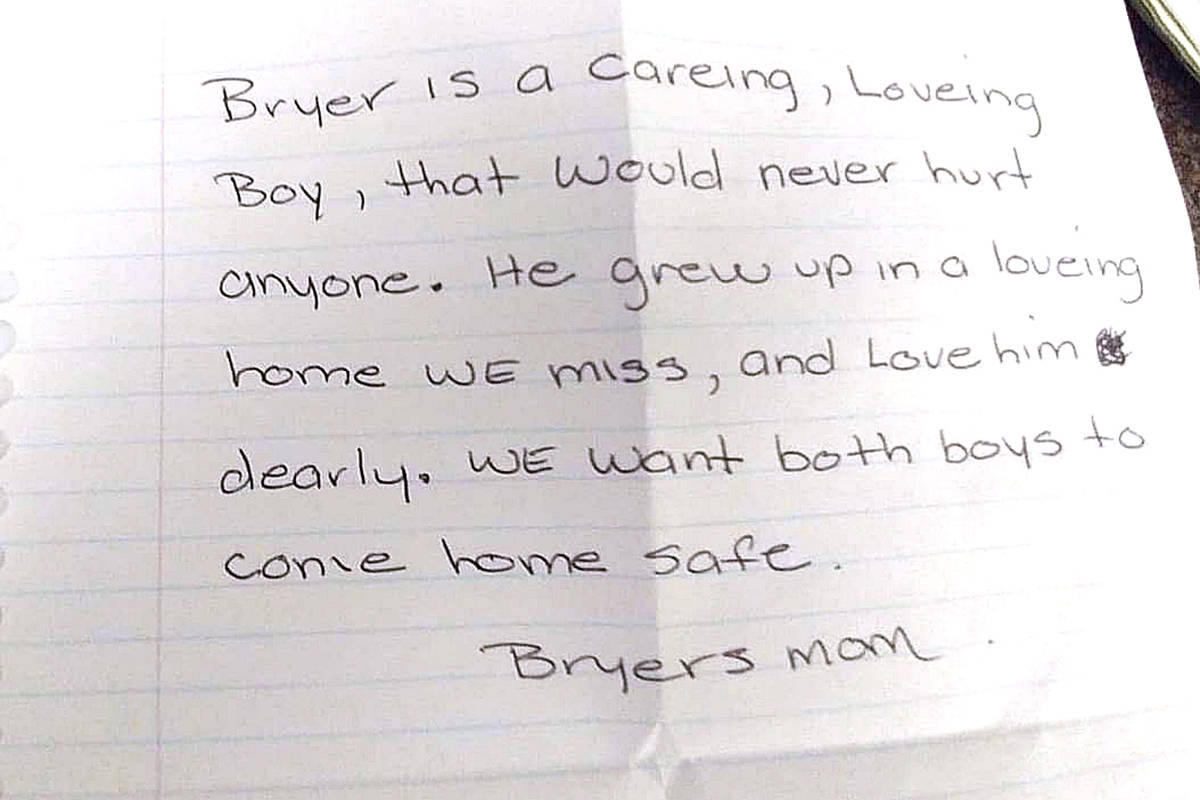 Bryer is a careing, Loveing
Boy, that would never hurt
anyone. He grew up in a loveing
home WE miss, and Love him
dearly. WE want both boys to
come home safe.
Bryers mom